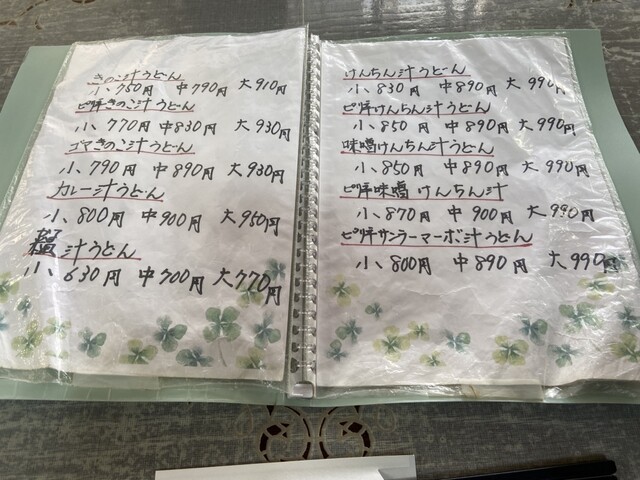 きのこ汁うどん
小、750円 中790円 大910円
ピリ辛きのこ汁うどん
小、770円 中830円 大930円
ゴマきのこ汁うどん
小、790円 中890円 大930円
カレー汁うどん
小、800円 中900円 大950円
汁うどん
小、630円 中700円 大770円
けんちん汁うどん
小、830円 中890円 大990円
ピリ辛けんちん汁うどん
小、850円 中890円 大990円
味噌けんちん汁うどん
小、850円 中890円 大990円
ピリ辛味噌けんちん汁
小、870円 中900円 大990円
ピリ辛サンラーマーボ汁うどん
小、800円 中890円 大990円